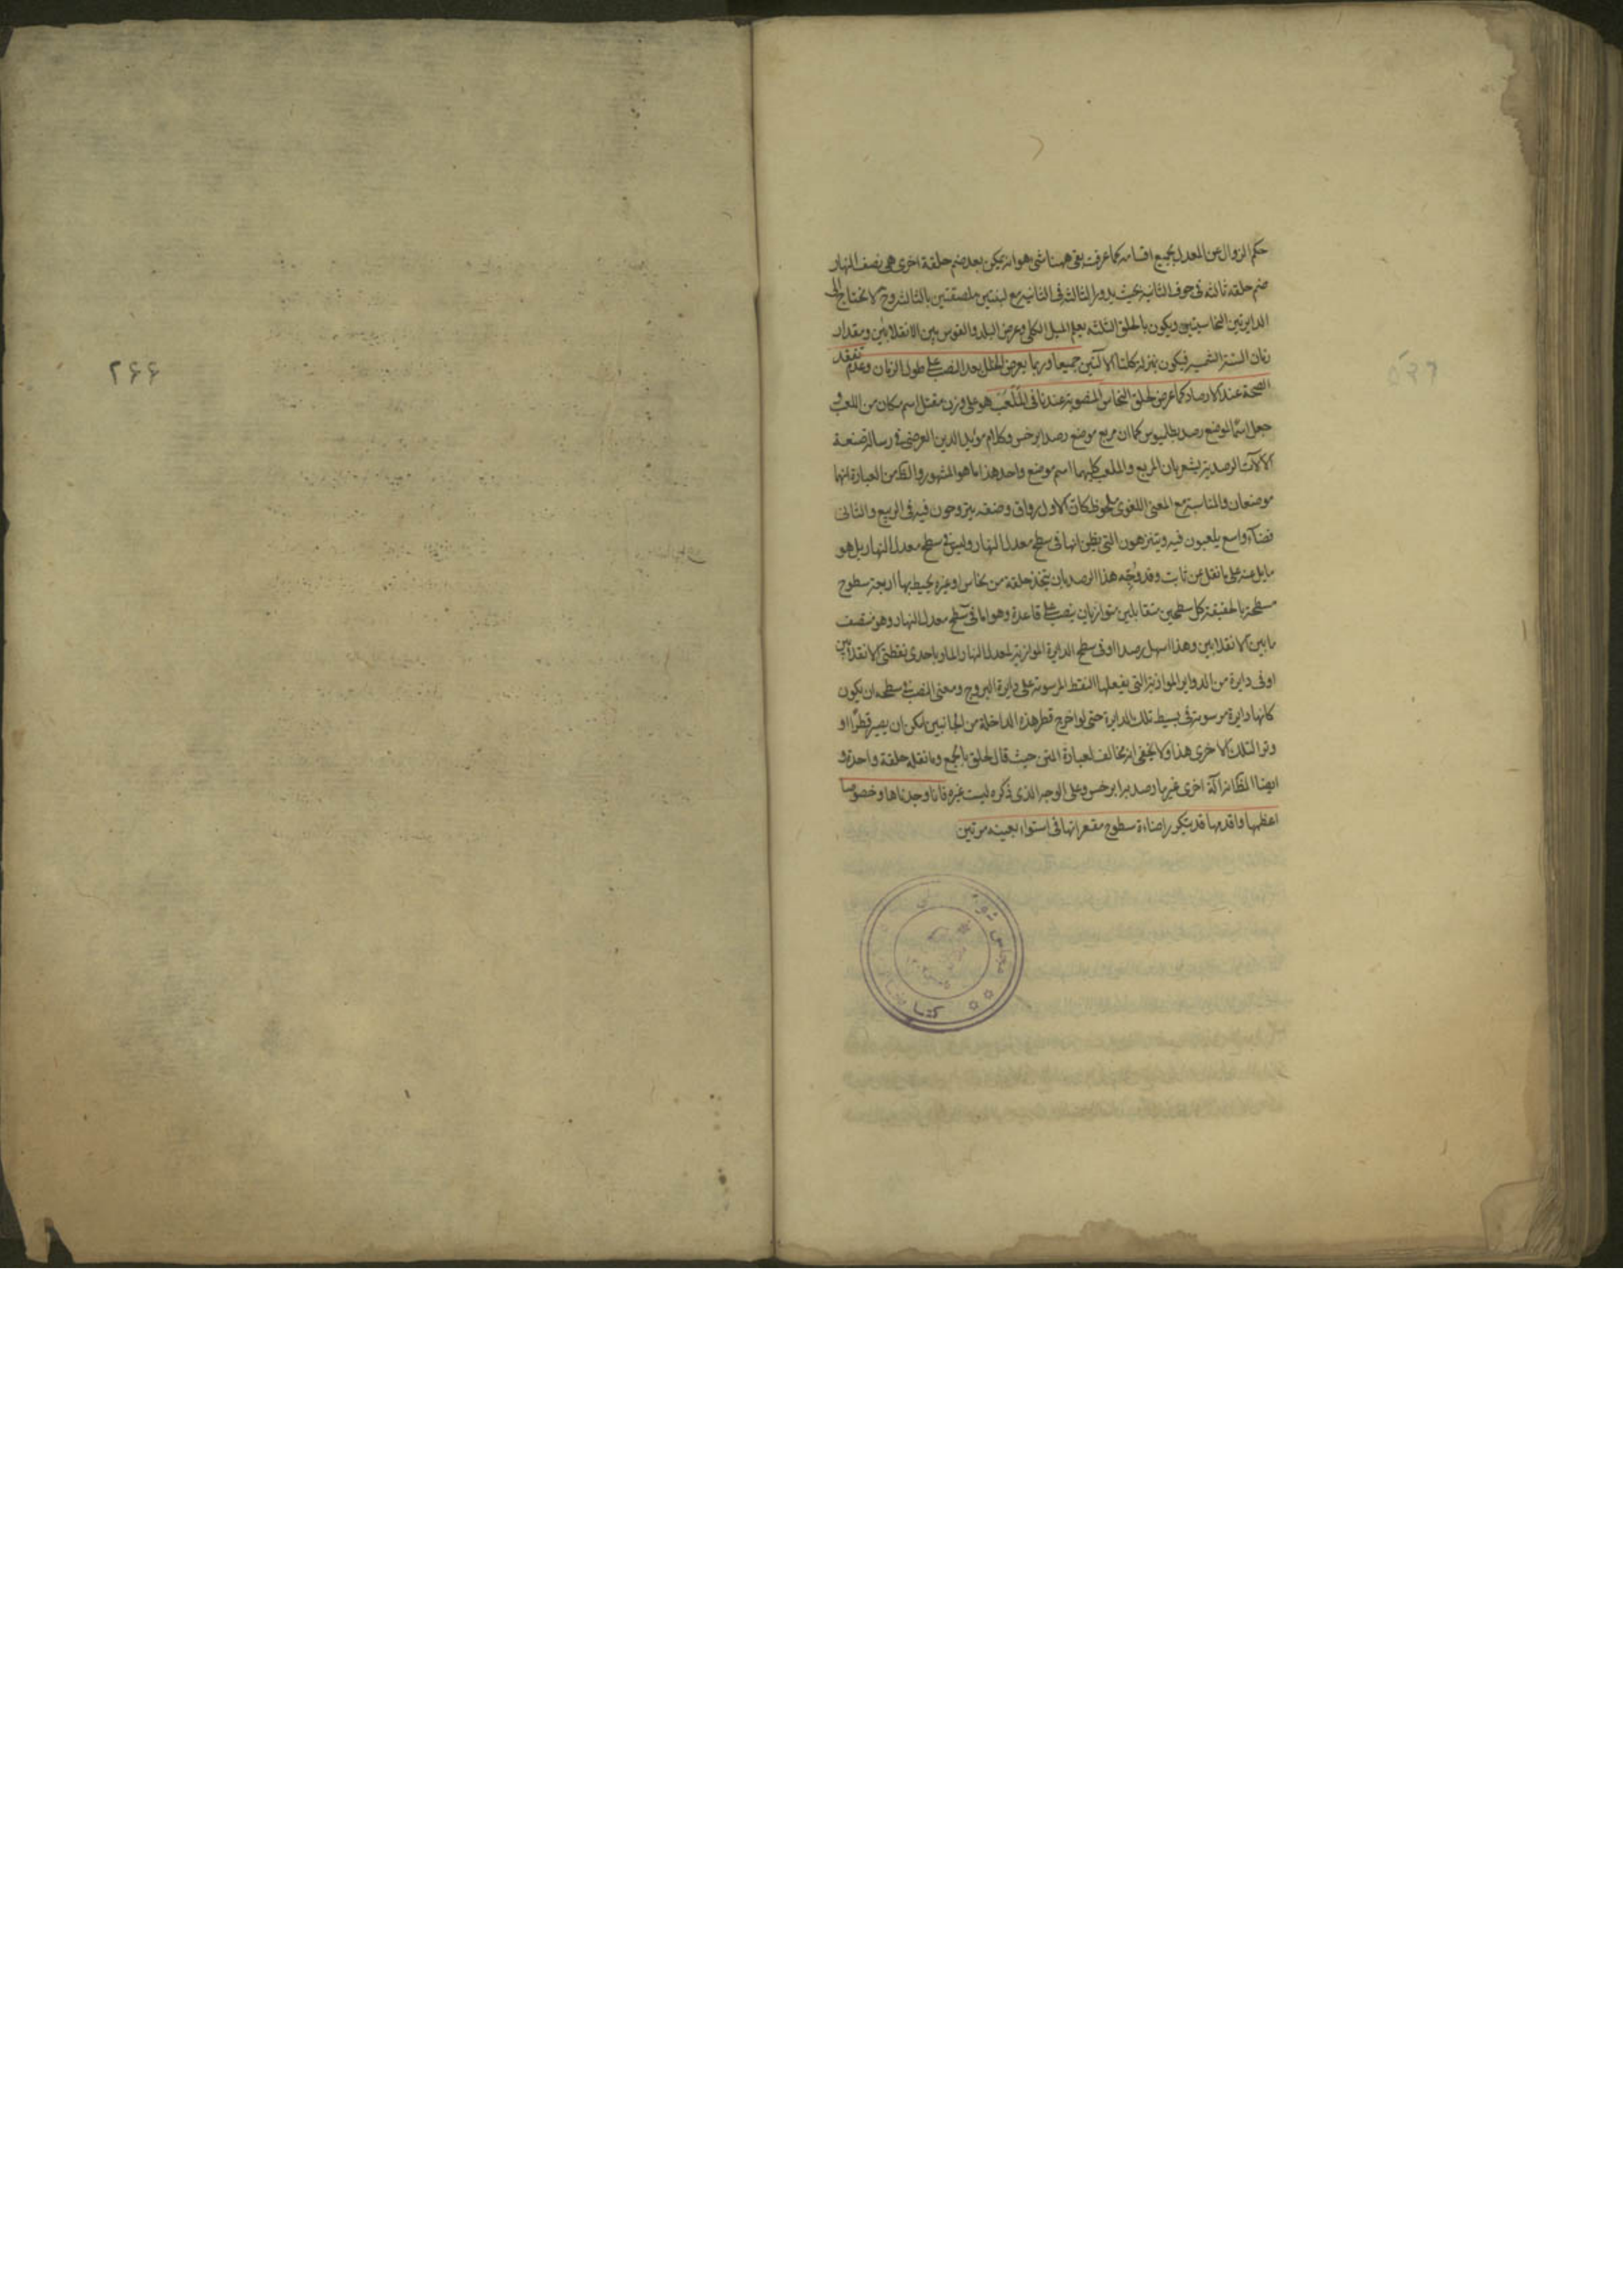 حكم الزوال عن المعدل بجميع اقسامه كما عرفت بقى ههنا شئ هو انه يمكن بعد ضم حلقة اخرى هى نصف النهار
ضم حلقه ثالثه فى جوف الثانيه بحيث يدور الثالثه فى الثانيه مع لبنتين ملصقتين بالثالثه وح لا يحتاج الى
الدايرتين النحاسيتين ويكون بالحلق الثلثه يعلم الميل الكلى وعرض البلد والقوس بين الانقلابين ومقدار
زمان السنة الشمسيه فيكون بمنزلة كلتا الآلتين جميعا وربما يعرض الخلل بعد النصب على طول الزمان وعدم تفقد
الصحة عند الارصاد كما عرض لحلق النحاس المنصوبة عندنا فى المَلْعَب هو على وزن مفعل اسم مكان من اللعب و
جعل اسما لموضع رصد بطليوس كما ان مربع موضع رصد ابرخس وكلام مؤيد الدين العرضى فى رسالة صنعة
الآلات الرصدية يشعر بان المربع والملعب كليهما اسم موضع واحد هذا ما هو المشهور والظ من العبارة انهما
موضعان والمناسبة مع المعنى اللغوى ملحوظ كان الاول رواق وصفه يتروحون فيه فى الربيع والثانى
فضآء واسع يلعبون فيه ويتنزهون التى يظن انها فى سطح معدل النهار وليس فى سطح معدل النهار بل هو
مايل عنه على ما نقل عن ثابت وقد وُجّه هذا الرصد بان يتخذ حلقة من نحاس او غيره يحيط بها اربعة سطوح
مسطحة بالحقيقة كل سطحين متقابلين متوازيان ينصب على قاعدة وهو اما فى سطح معدل النهار وهو منتصف
ما بين الانقلابين وهذا اسهل رصدا او فى سطح الدايرة الموازية لمعدل النهار المار باحدى نقطتى الانقلابين
او فى دايرة من الدواير الموازية التى يفعلها النقط المرسومة على دايرة البروج ومعنى النصب فى سطحه ان يكون
كانها دايرة مرسومة فى بسيط تلك الدايرة حتى لو اخرج قطر هذه الداخلة من الجانبين لمكن ان يصير قطرًا او
وترا لتلك الاخرى هذا ولا يخفى انه مخالف لعبارة المتن حيث قال لحلق بالجمع وما نقله حلقة واحدة و
ايضا الظ انه آلة اخرى غير ما رصد به ابرخس وعلى الوجه الذى ذكره ليست غيره فانا وجدناها وخصوصا
اعظمها واقدمها قد يتكرر اضاءة سطوح مقعراتها فى استواء بعينه مرتين
۲۶۶